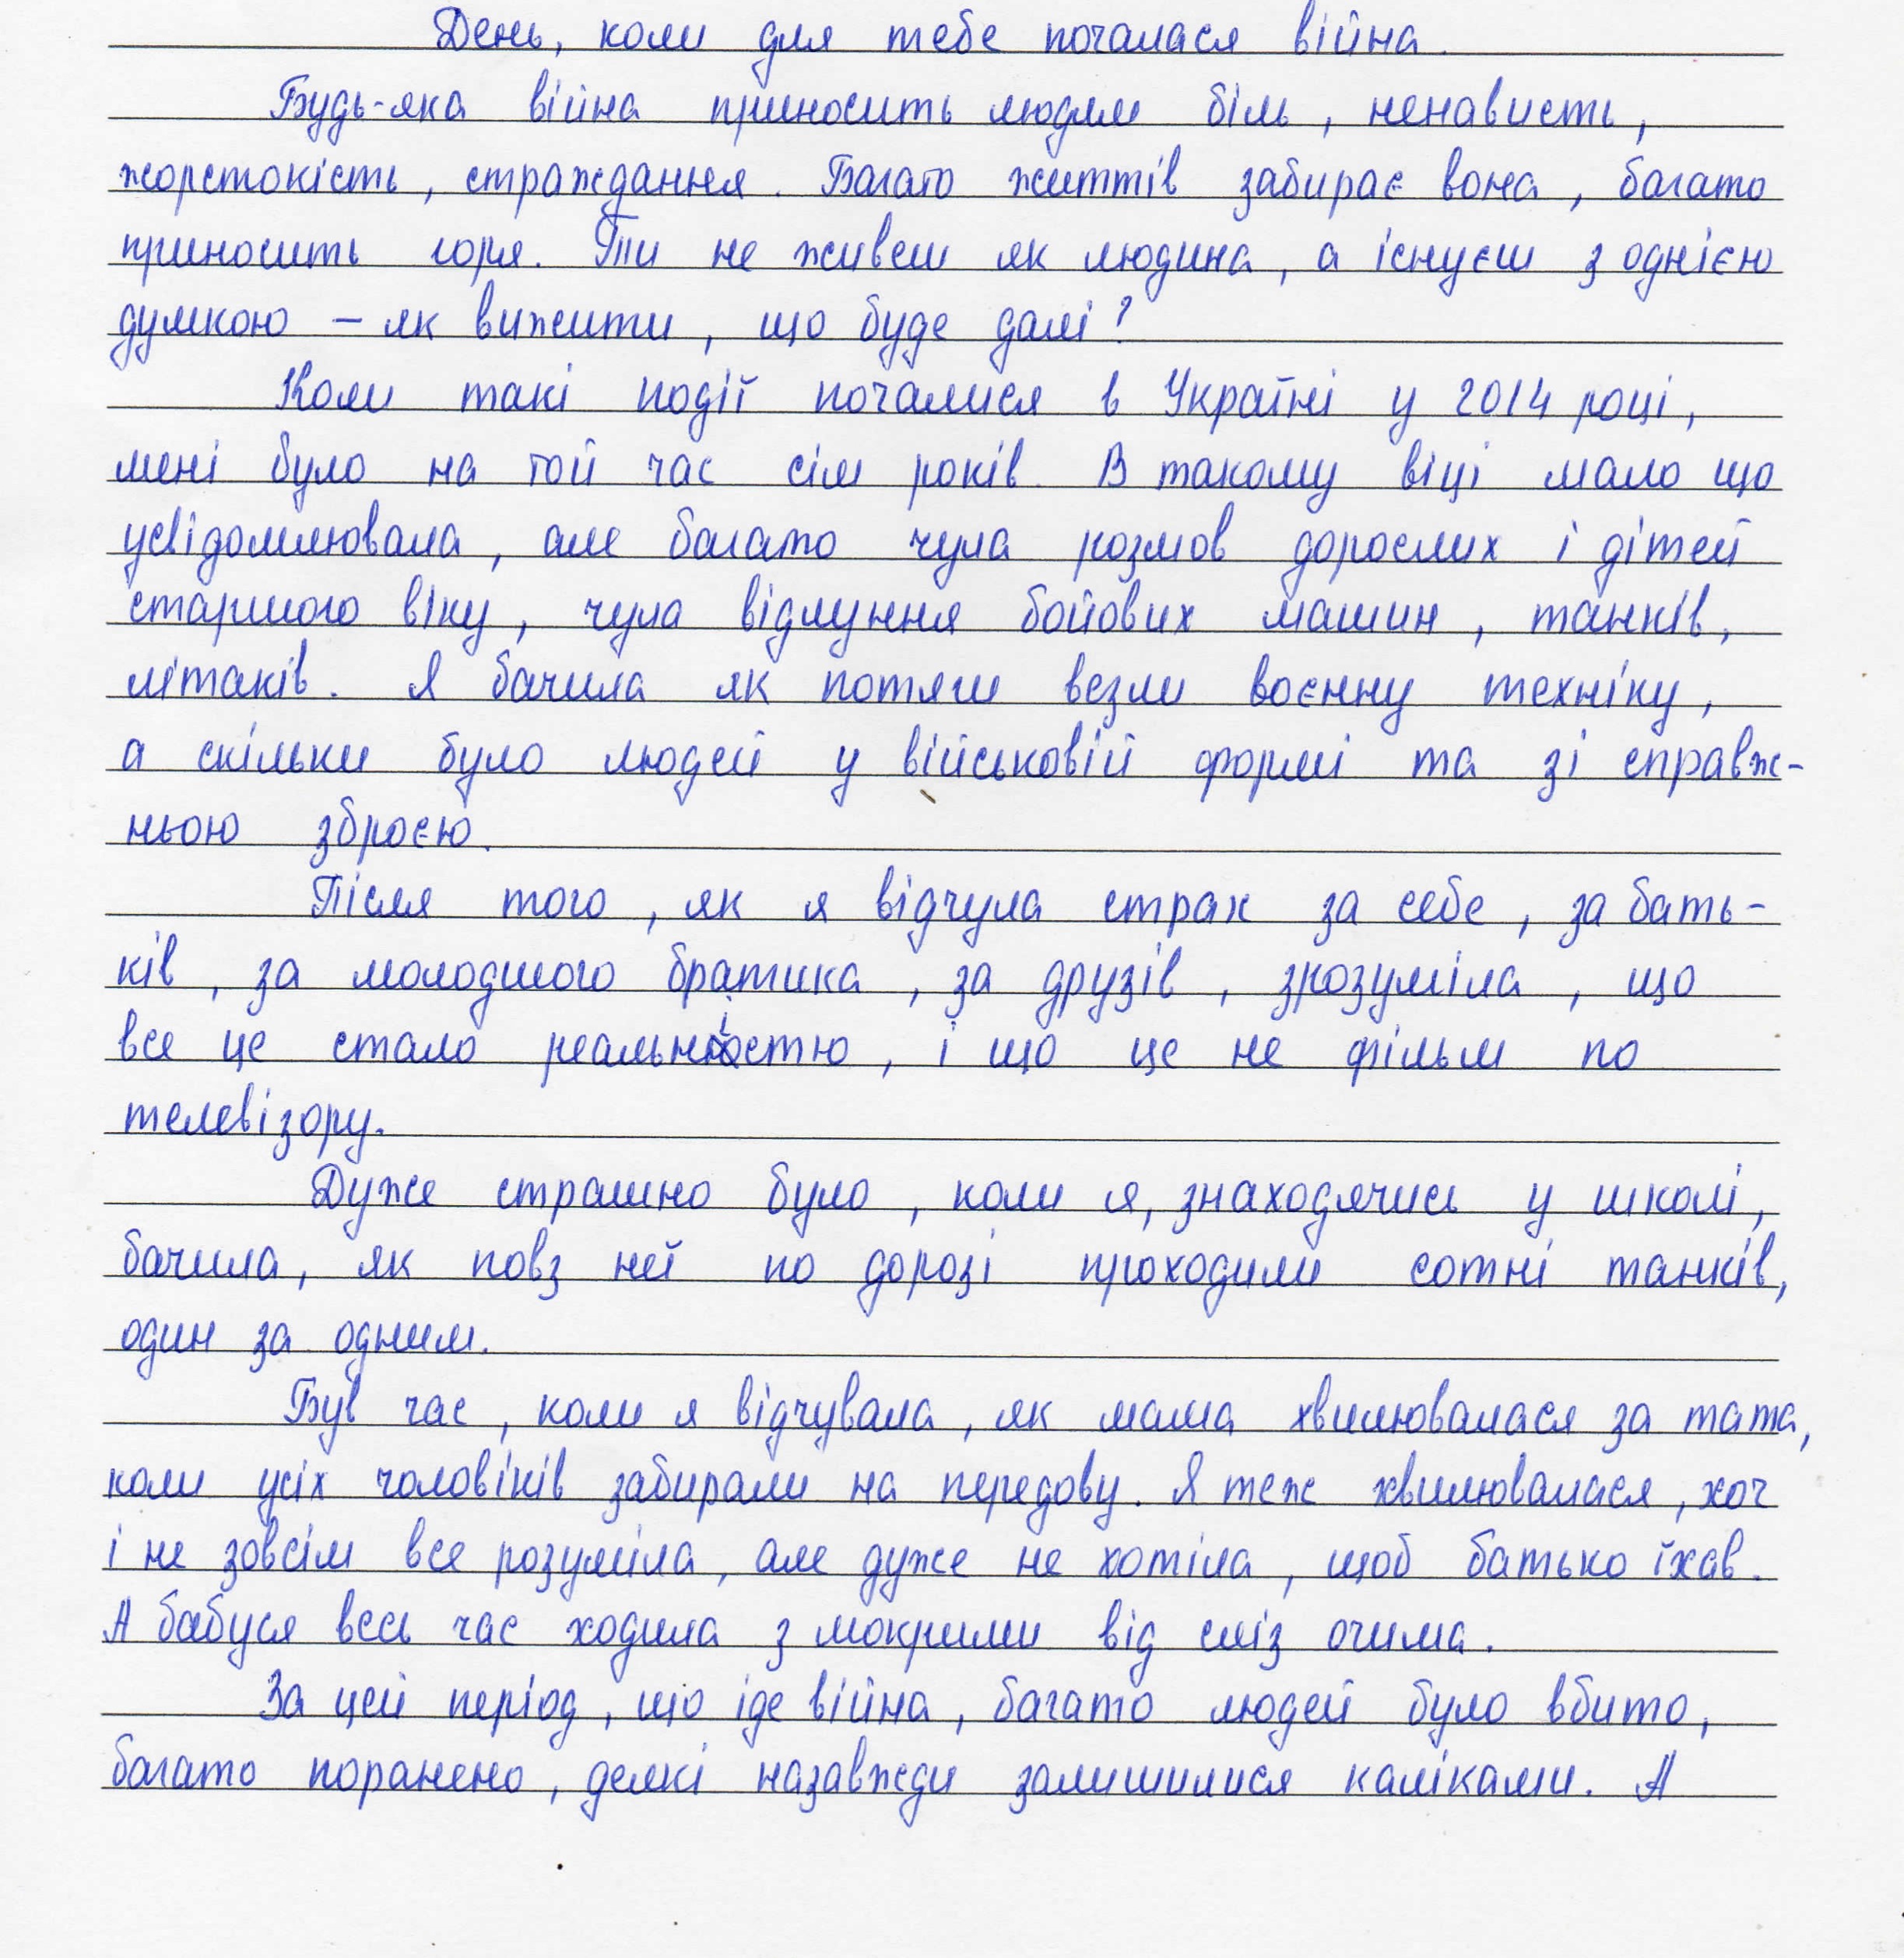 День, коли для тебе почалася війна.
Будь-яка війна приносить людям біль, ненависть,
жорстокість, страждання. Багато життів забирає вона, багато
приносить горя. Ти не живеш як людина, а існуєш з однією
думкою – як вижити, що буде далі?
Коли такі події почалися в Україні у 2014 році,
мені було на той час сім років. В такому віці мало що
усвідомлювала, але багато чула розмов дорослих і дітей
старшого віку, чула відлуння бойових машин, танків,
літаків. Я бачила як потяги везли воєнну техніку,
а скільки було людей у військовій формі та зі справж-
ньою зброєю.
Після того, як я відчула страх за себе, за бать-
ків, за молодшого братика, за друзів, зрозуміла, що
все це стало реальністю, і що це не фільм по
телевізору.
Дуже страшно було, коли я, знаходячись у школі,
бачила, як повз неї по дорозі проходили сотні танків,
один за одним.
Був час, коли я відчувала, як мама хвилювалася за тата,
коли усіх чоловіків забирали на передову. Я теж хвилювалася, хоч
і не зовсім все розуміла, але дуже не хотіла, щоб батько їхав.
А бабуся весь час ходила з мокрими від сліз очима.
За цей період, що іде війна, багато людей було вбито,
багато поранено, деякі назавжди залишилися каліками. А